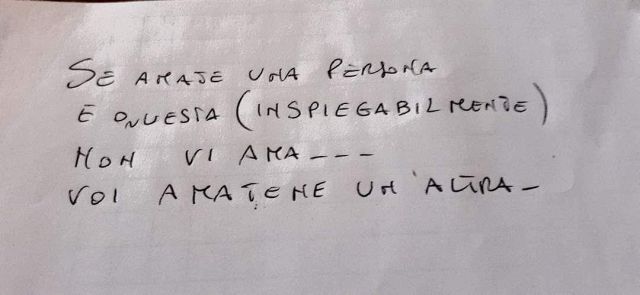 SE AMATE UNA PERSONA
E QUESTA (INSPIEGABILMENTE)
NON VI AMA---
VOI AMATENE UN'ALTRA-